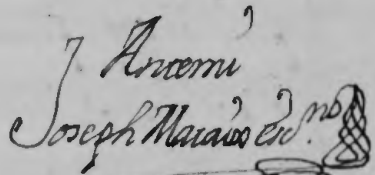 Antemi
Joseph Maraboo esc.no